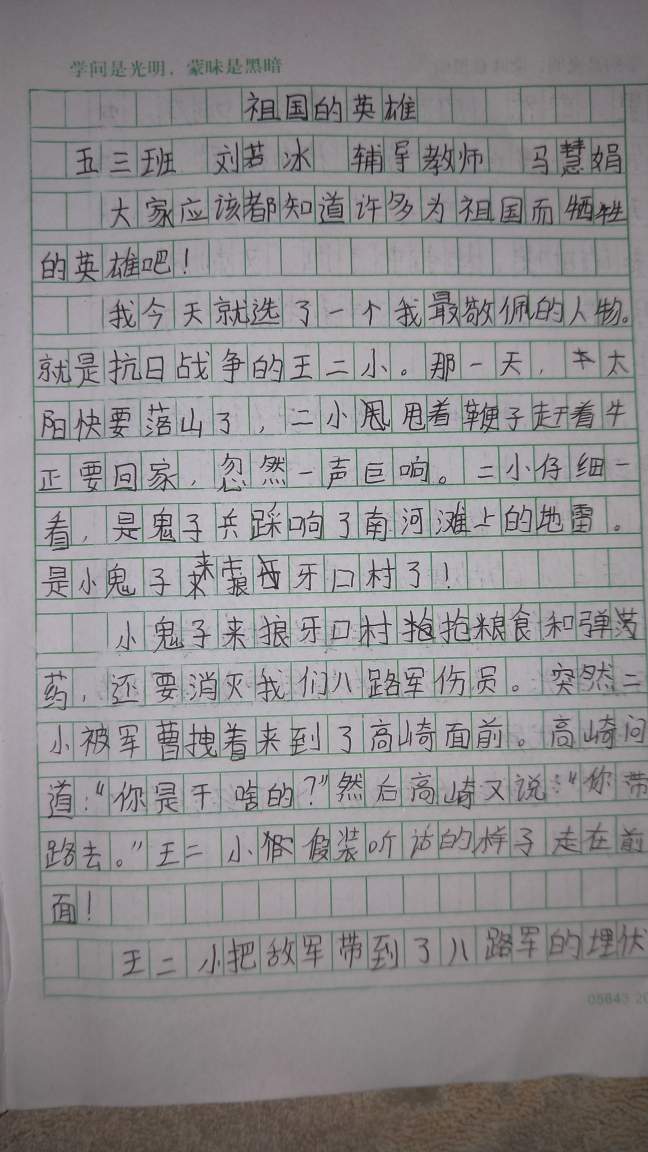 学问是光明，蒙昧是黑暗
祖国的英雄
五三班 刘若冰 辅导教师 马慧娟
大家应该都知道许多为祖国而牺牲
的英雄吧！
我今天就选了一个我最敬佩的人物。
就是抗日战争的王二小。那一天，太
阳快要落山了，二小甩着鞭子赶着牛
正要回家，忽然一声巨响。二小仔细一
看，是鬼子兵踩响了南河滩上的地雷。
是小鬼子来狼牙口村了！
小鬼子来狼牙口村抢粮食和弹
药，还要消灭我们八路军伤员。突然二
小被军曹拽着来到了高崎面前。高崎问
道：“你是干啥的？”然后高崎又说：“你带
路去。”王二小假装听话的样子走在前
面！
王二小把敌军带到了八路军的埋伏
05643 20